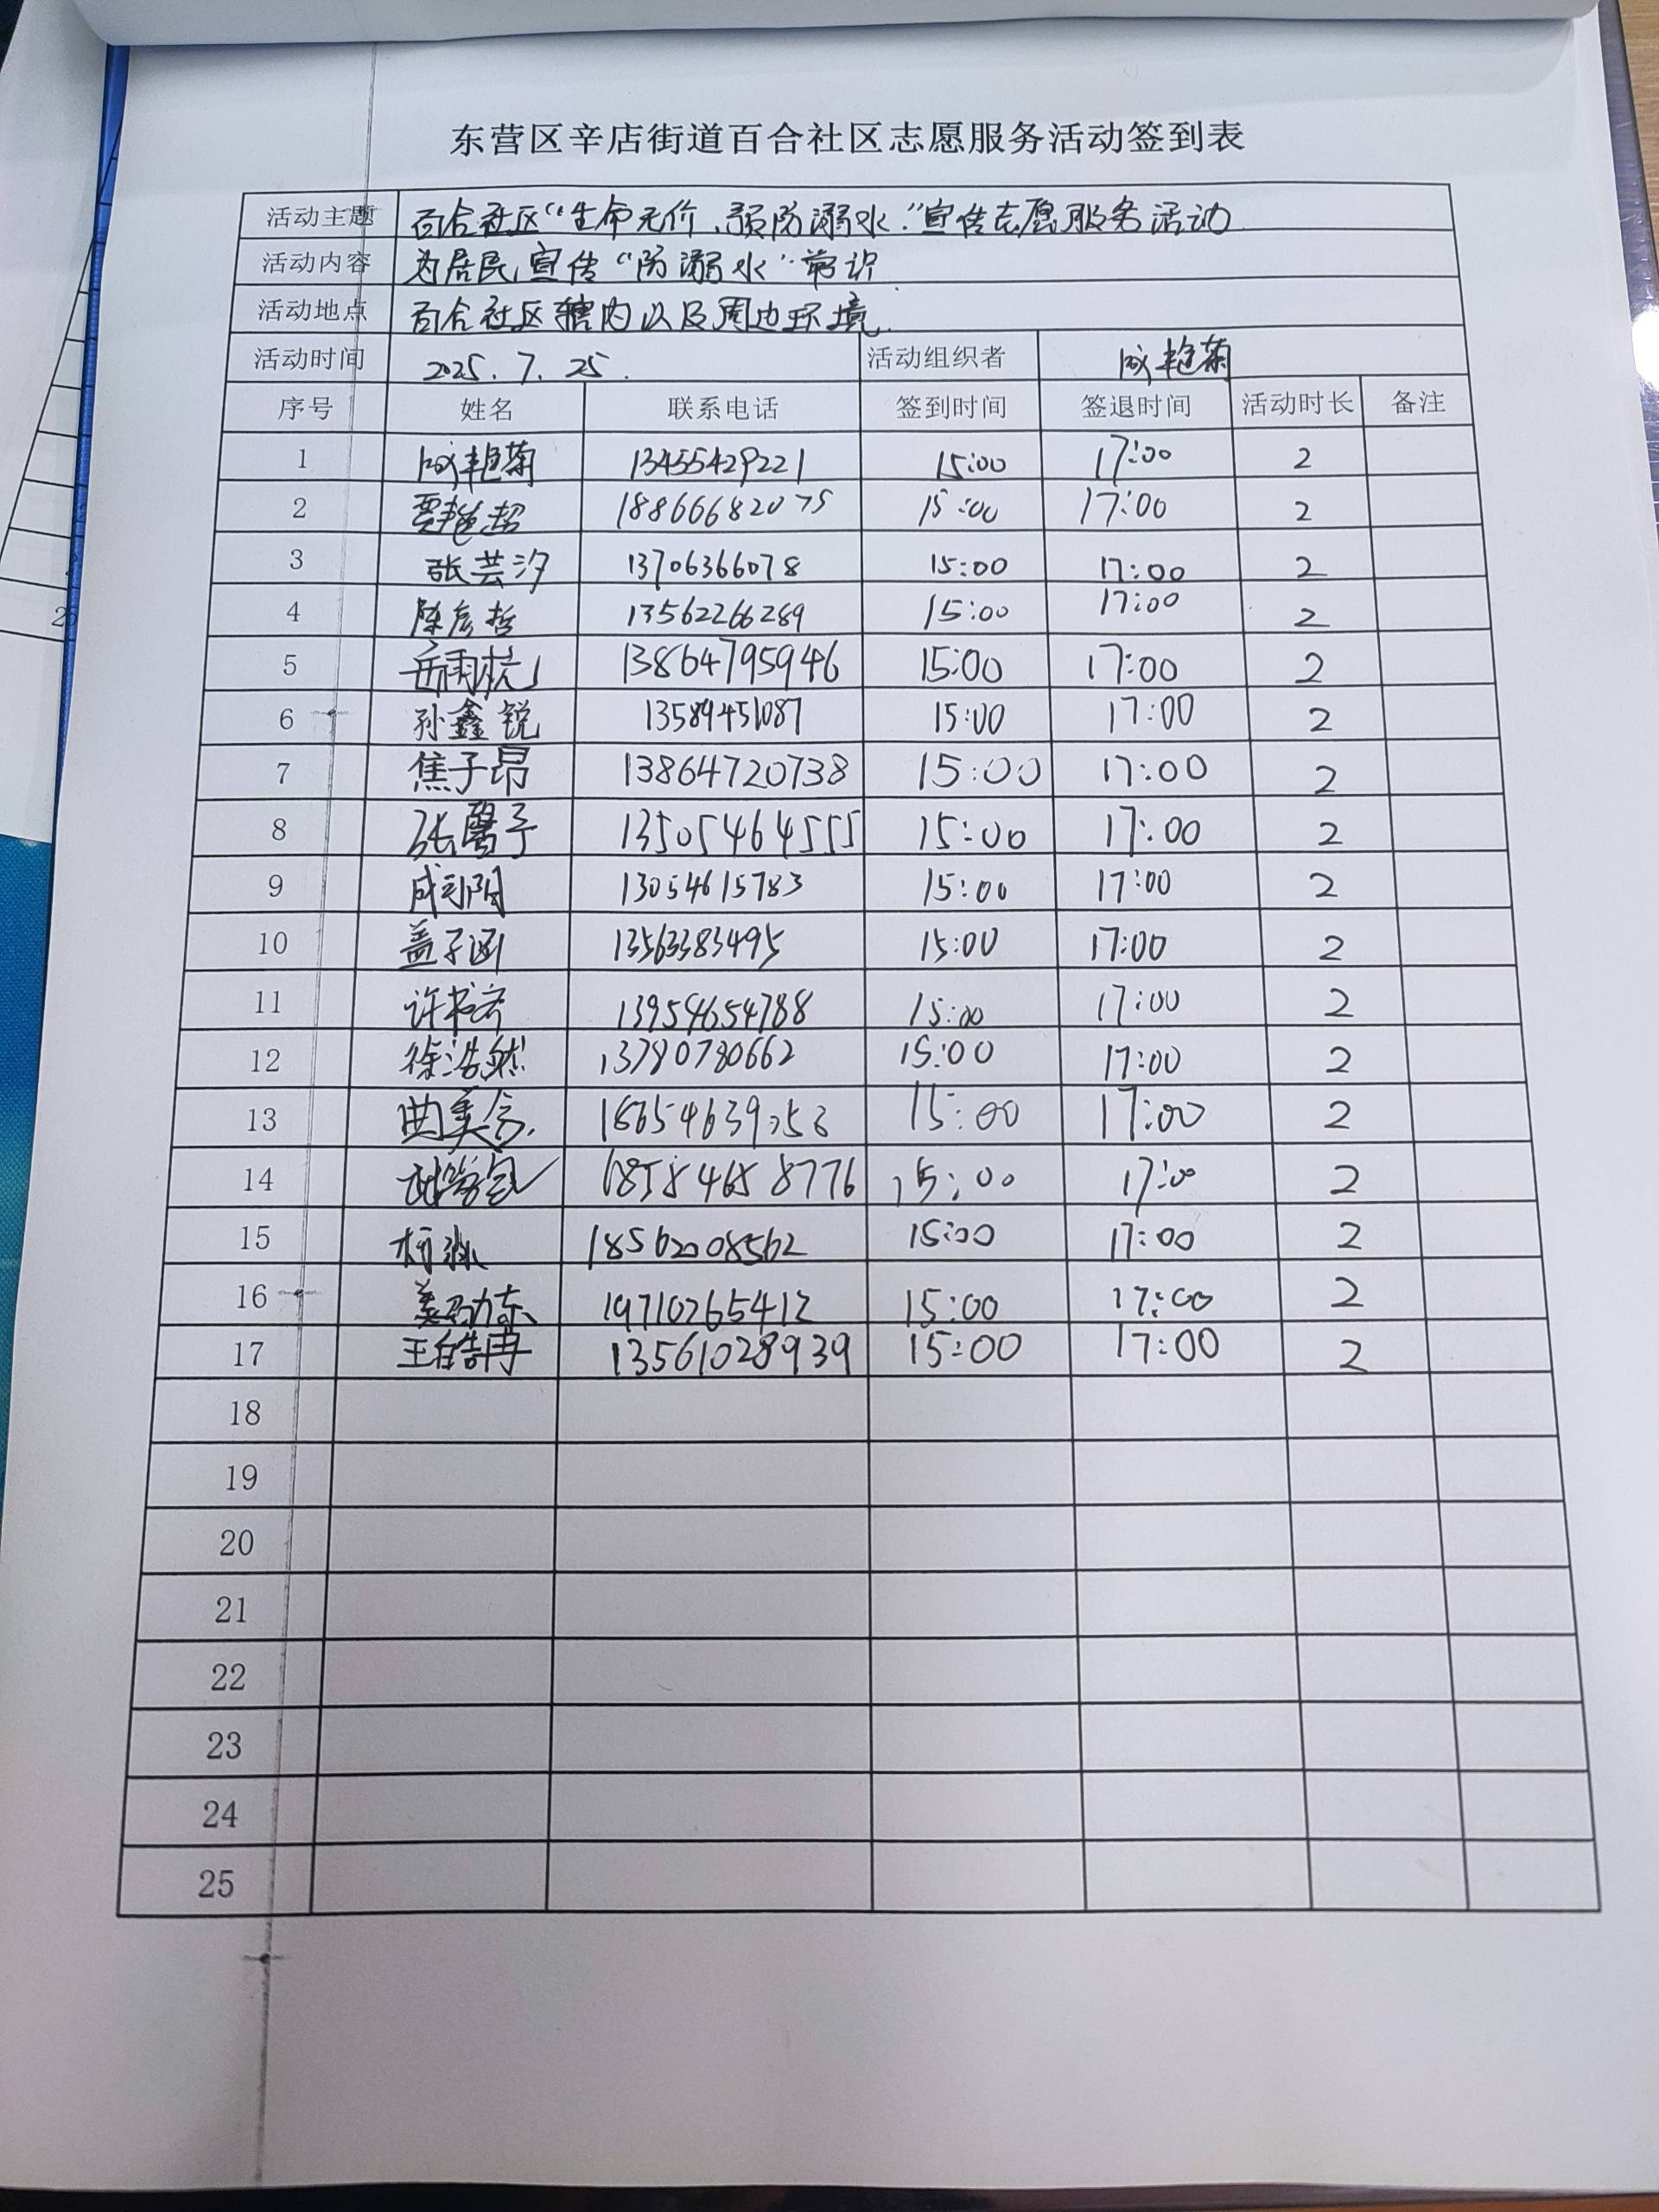 东营区辛店街道百合社区志愿服务活动签到表
活动主题 百合社区“生命无价、预防溺水”宣传志愿服务活动
活动内容 为居民宣传“防溺水”常识
活动地点 百合社区辖内以及周边环境.
活动时间 2025.7.25. 活动组织者 成艳菊
序号 姓名 联系电话 签到时间 签退时间 活动时长 备注
1 成艳菊 13455429221 15:00 17:00 2
2 贾艳超 18866682075 15:00 17:00 2
3 张芸汐 13706366078 15:00 17:00 2
4 陈彦哲 13562266289 15:00 17:00 2
5 岳雨杭 13864795946 15:00 17:00 2
6 孙鑫锐 13589451087 15:00 17:00 2
7 焦子昂 13864720738 15:00 17:00 2
8 张馨予 13505464555 15:00 17:00 2
9 13054615783 15:00 17:00 2
10 盖子涵 13563383495 15:00 17:00 2
11 13954654788 15:00 17:00 2
12 徐浩然 13780780662 15:00 17:00 2
13 曲美含 15:00 17:00 2
14 15:00 17:00 2
15 18562008562 15:00 17:00 2
16 19710265412 15:00 17:00 2
17 王皓冉 13561028939 15:00 17:00 2
18
19
20
21
22
23
24
25